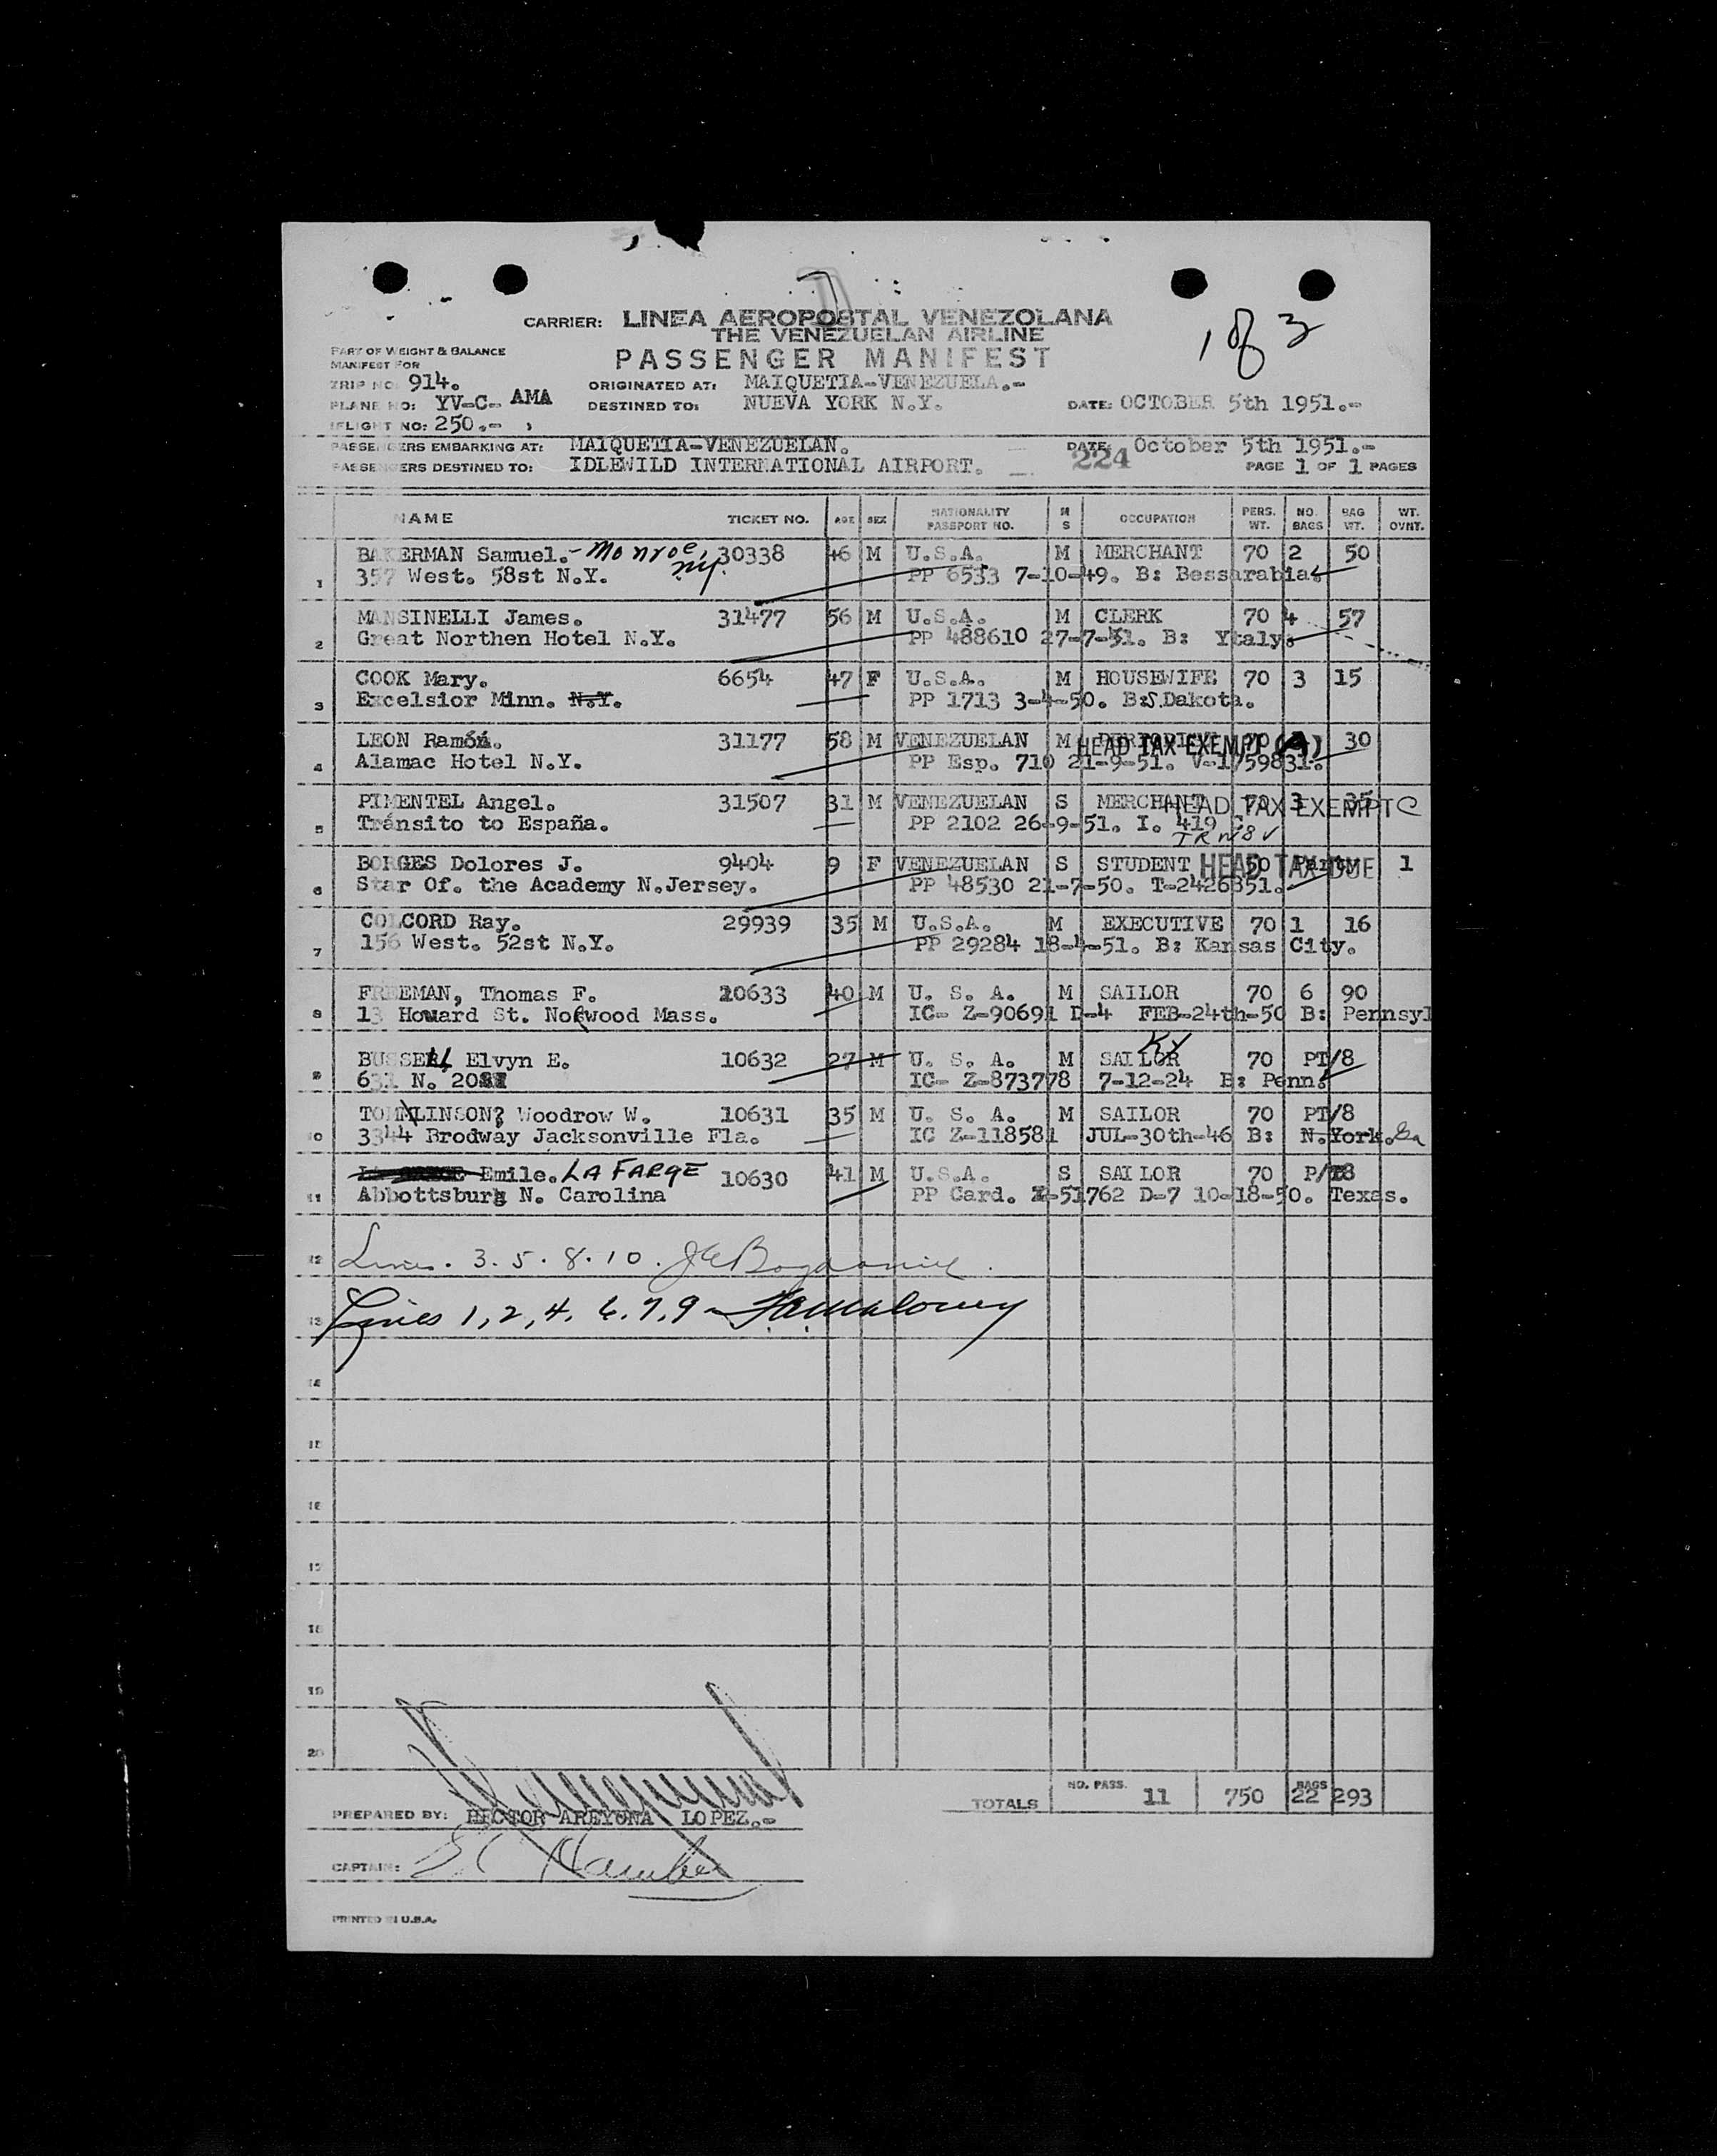 1 of 3
CARRIER: LINEA AEROPOSTAL VENEZOLANA
THE VENEZUELAN AIRLINE
PART OF WEIGHT & BALANCE
MANIFEST FOR
PASSENGER MANIFEST
TRIP NO: 914. ORIGINATED AT: MAIQUETIA-VENEZUELA.-
PLANE NO: YV-C- AMA DESTINED TO: NUEVA YORK N.Y. DATE: OCTOBER 5th 1951.-
FLIGHT NO: 250.-
PASSENGERS EMBARKING AT: MAIQUETIA-VENEZUELAN. DATE: October 5th 1951.-
224
PASSENGERS DESTINED TO: IDLEWILD INTERNATIONAL AIRPORT. PAGE 1 OF 1 PAGES
NAME TICKET NO. AGE SEX NATIONALITY PASSPORT NO. M S OCCUPATION PERS. WT. NO. BAGS BAG WT. WT. OVNT.
BAKERMAN Samuel.- Monroe, NY. 30338 46 M U.S.A. M MERCHANT 70 2 50
1 357 West. 58st N.Y. PP 6533 7-10-49. B: Bessarabia.
MANSINELLI James. 31477 56 M U.S.A. M CLERK 70 4 57
2 Great Northen Hotel N.Y. PP 488610 27-7-51. B: Ytaly.
COOK Mary. 6654 47 F U.S.A. M HOUSEWIFE 70 3 15
3 Excelsior Minn. N.Y. PP 1713 3-4-50. B:S.Dakota.
LEON Ramón. 31177 58 M VENEZUELAN M HEAD TAX EXEMPT (A) 30
4 Alamac Hotel N.Y. PP Esp. 710 21-9-51. V-1759831.
PIMENTEL Angel. 31507 31 M VENEZUELAN S MERCHANT 70 3 35 HEAD TAX EXEMPT C
5 Tránsito to España. PP 2102 26-9-51. I. 419
BORGES Dolores J. 9404 9 F VENEZUELAN S STUDENT 50 HEAD TAX DUE 1
6 Star Of. the Academy N.Jersey. PP 48530 21-7-50. T-2426351.
COLCORD Ray. 29939 35 M U.S.A. M EXECUTIVE 70 1 16
7 156 West. 52st N.Y. PP 29284 18-4-51. B: Kansas City.
FREEMAN, Thomas F. 10633 40 M U. S. A. M SAILOR 70 6 90
8 13 Howard St. Norwood Mass. IC- Z-90691 D-4 FEB-24th-50 B: Pennsyl
KY
BUSSELL Elvyn E. 10632 27 M U. S. A. M SAILOR 70 PT/8
9 631 N. 20 IC- Z-873778 7-12-24 B: Penn.
TOMLINSON? Woodrow W. 10631 35 M U. S. A. M SAILOR 70 PT/8
10 3344 Brodway Jacksonville Fla. IC Z-118581 JUL-30th-46 B: N.York. Ga
Emile. LA FARGE 10630 41 M U.S.A. S SAILOR 70
11 Abbottsburg N. Carolina PP Card. Z-51762 D-7 10-18-50. Texas.
12 Lines. 3. 5. 8. 10.
13 Lines 1, 2, 4, 6, 7, 9
14
15
16
17
18
19
20
TOTALS NO. PASS. 11 750 BAGS 22 293
PREPARED BY: HECTOR AREYUNA LOPEZ.-
CAPTAIN:
PRINTED IN U.S.A.